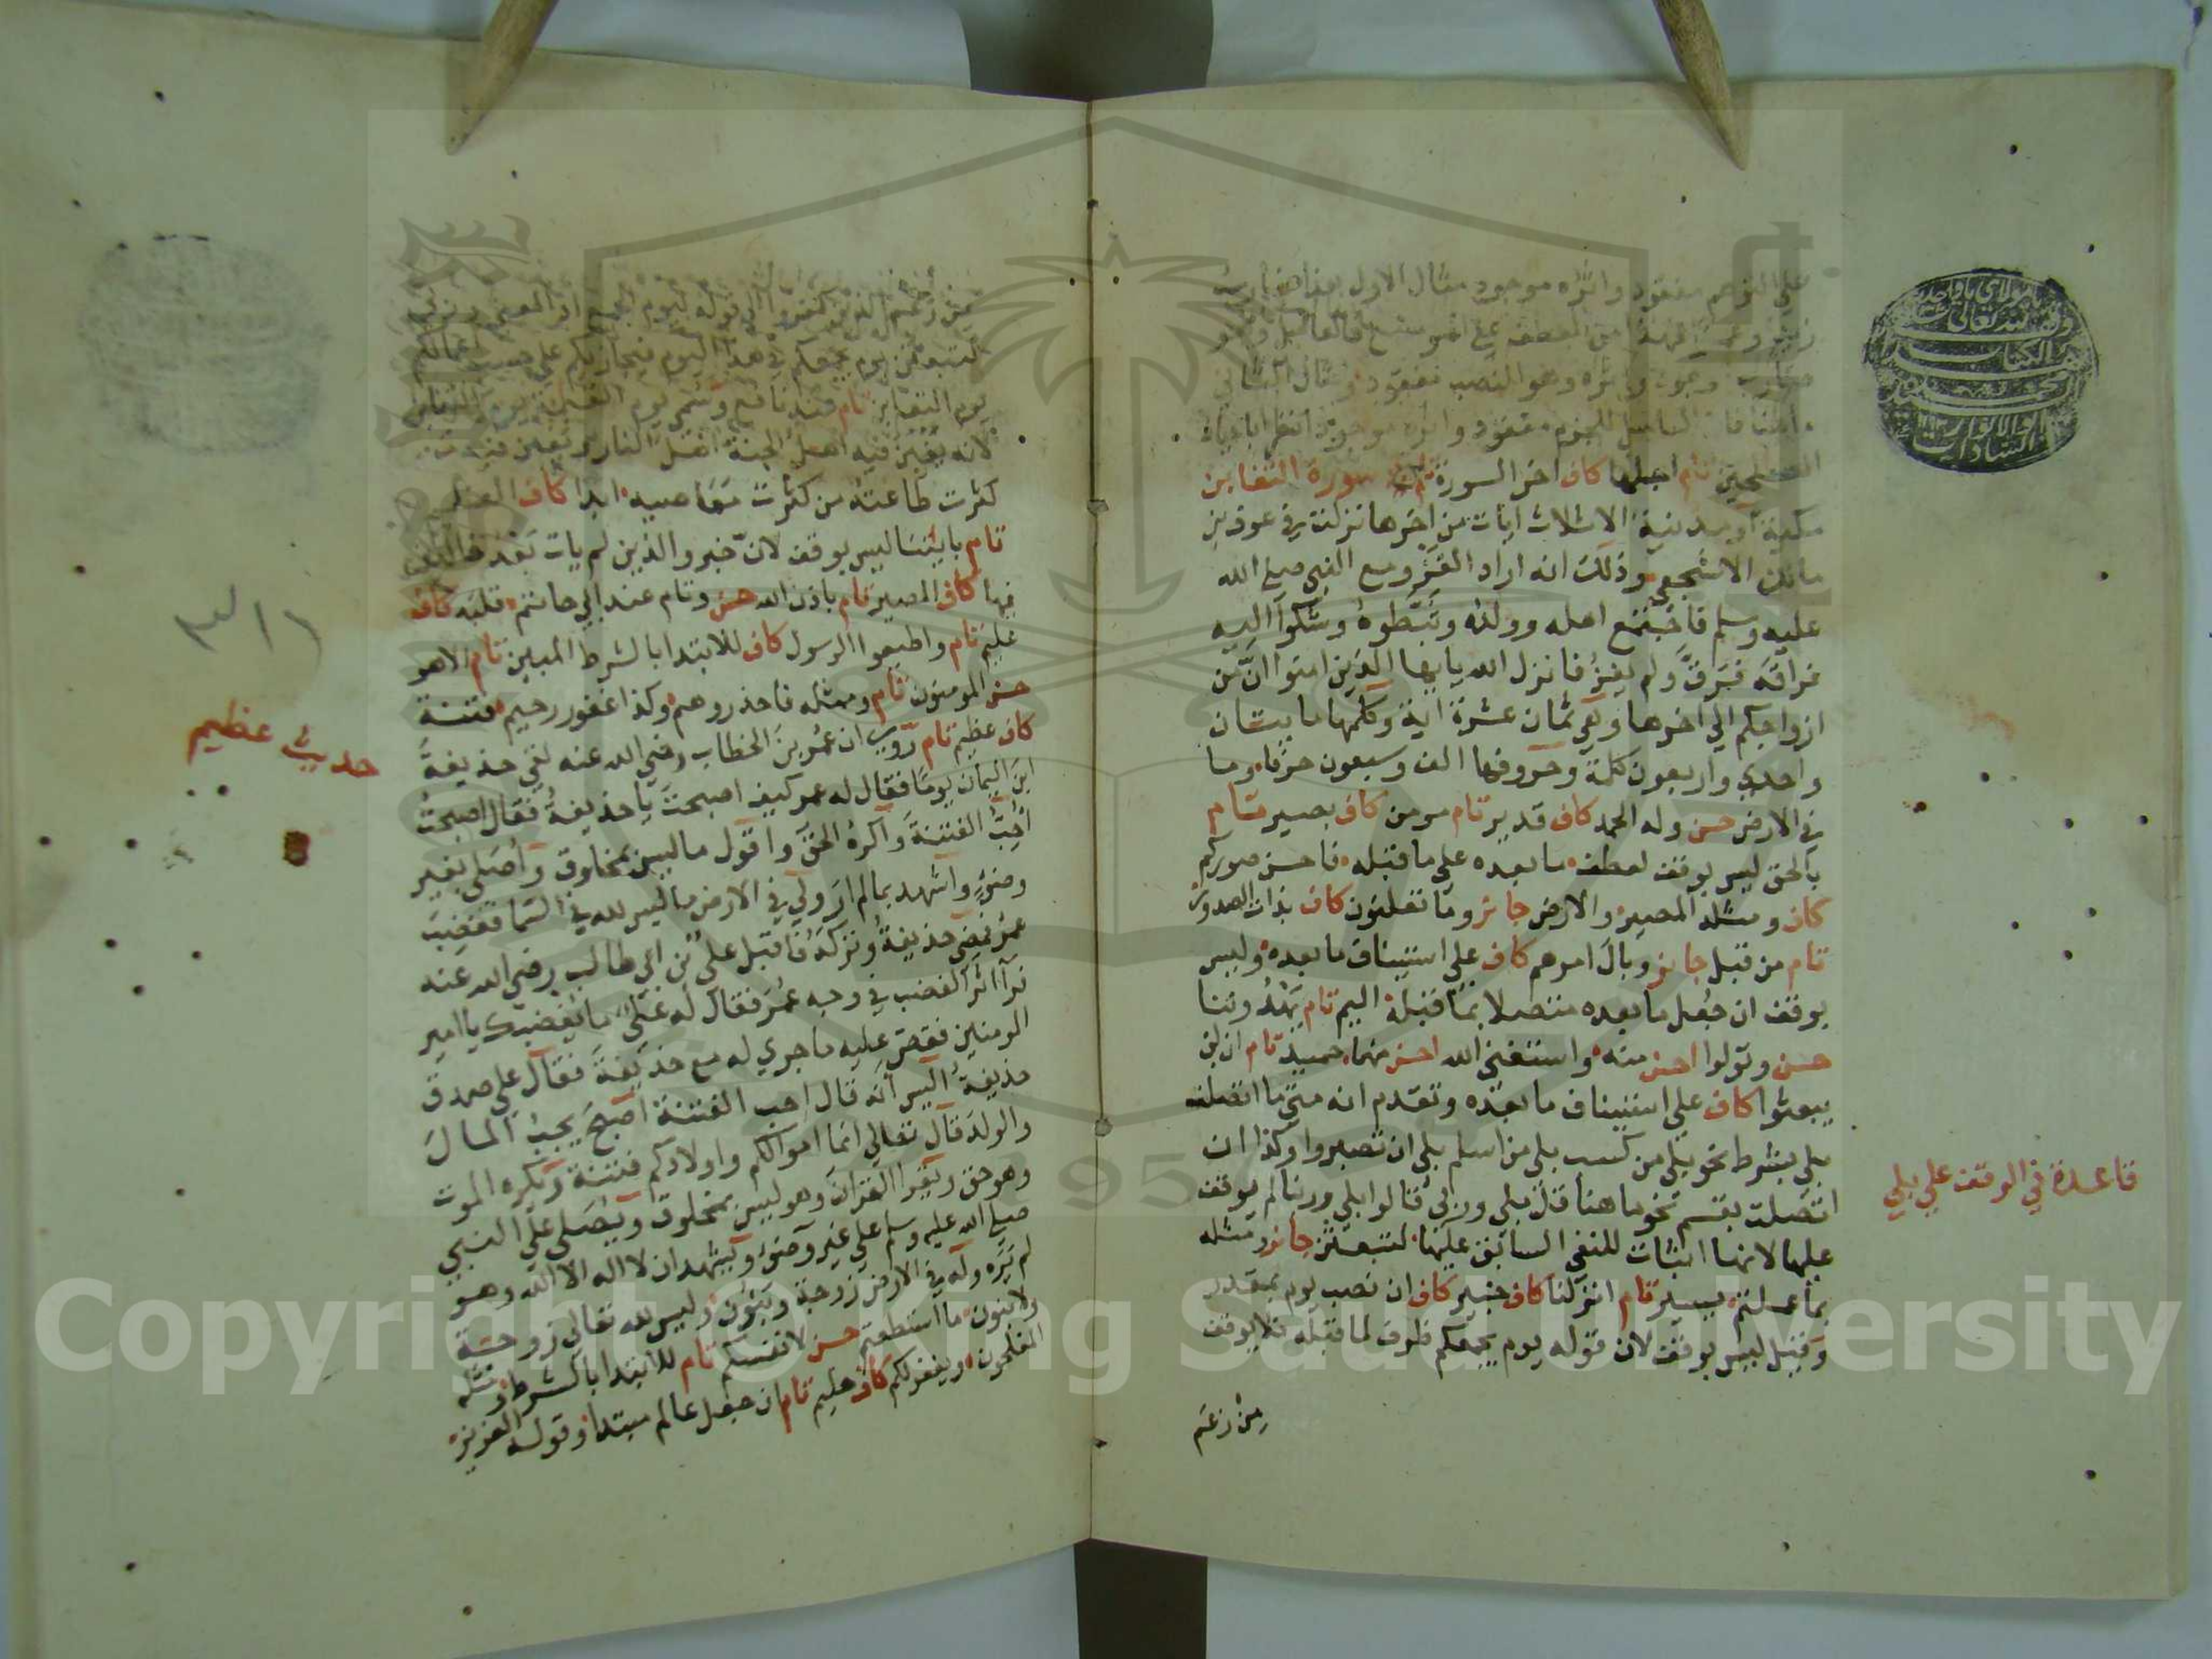 على التوهم مفقود واثره موجود مثال الاول هذا ضارب
زيد وعمرا فهذا من العطف على الموضع فالعامل وهو
ضارب موجود واثره وهو النصب مفقود ومثال الثاني
ما هنا فان العامل للجزم مفقود واثره موجود انظر ابا حيان
الصلحين تام اجلها كاف اخر السورة تام سورة التغابن
مكية او مدنية الاثلاث ايات من اخرها نزلت في عوف بن
مالك الاشجعي وذلك انه اراد الغزو مع النبي صلى الله
عليه وسلم فاجتمع اهله وولده وثبطوه وشكوا اليه
فراقه فرق ولم يغز فانزل الله يايها الذين امنوا ان من
ازواجكم الي اخرها وهي ثمان عشرة اية وكلمها مايتان
واحدي واربعون كلمة وحروفها الف وسبعون حرفا وما
في الارض حسن وله الحمد كاف قدير تام مومن كاف بصير تام
بالحق ليس بوقف لعطف ما بعده على ما قبله فاحسن صوركم
كاف ومثله المصير والارض جائز وما تعلنون كاف بذات الصدور
تام من قبل جائز وبال امرهم كاف على استيناف ما بعده وليس
بوقف ان جعل ما بعده متصلا بما قبله اليم تام يهدوننا
حسن وتولوا احسن منه واستغنى الله احسن منهما حميد تام ان لن
يبعثوا كاف علي استيناف ما بعده وتقدم انه متى ما اتصلت
بلي بشرط نحو بلي من كسب بلي من اسلم بلي ان تصبروا وكذا ان
اتصلت بقسم نحو ما هنا قل بلي وربي قالوا بلي وربنا لم يوقف
عليها لانها اثبات للنفي السابق عليها لتبعثن جائز ومثله
بما عملتم يسير تام انزلنا كاف خبير كاف ان نصب يوم بمقدر
وقيل ليس بوقف لان قوله يوم يجمعكم ظرف لما قبله فلا يوقف
من زعم
قاعدة في الوقف علي بلي
من زعم الذين كفروا الي قوله ليوم الجمع اذ المعنى وربي
لتبعثن يوم يجمعكم في هذا اليوم فيجازيكم على حسب اعمالكم
يوم التغابن تام
لانه يغبن فيه اهل الجنة اهل النار ويغبن فيه من
كثرت طاعته من كثرت معاصيه ابدا كاف العظيم
تام باياتنا ليس بوقف لان خبر والذين لم يات بعد خالدين
فيها كاف المصير تام باذن الله حسن وتام عند ابي حاتم قلبه كاف
عليم تام واطيعوا الرسول كاف للابتدا بالشرط المبين تام الاهو
حسن المومنون تام ومثله فاحذروهم وكذا غفور رحيم فتنة
كاف عظيم تام روي ان عمر بن الخطاب رضي الله عنه لقي حذيفة
ابن اليمان يوما فقال له عمر كيف اصبحت يا حذيفة فقال اصبحت
احب الفتنة واكره الحق واقول ما ليس بمخلوق واصلي بغير
وضوء واشهد بما لم ار ولي في الارض ما ليس لله في السما فغضب
عمر فمضى حذيفة وتركه فاقبل علي بن ابي طالب رضي الله عنه
فرآ اثر الغضب في وجه عمر فقال له علي ما يغضبك يا امير
المومنين فقص عليه ما جري له مع حذيفة فقال علي صدق
حذيفة اليس انه قال احب الفتنة اصبح يحب المال
والولد قال تعالي انما اموالكم واولادكم فتنة ويكره الموت
وهو حق ويقرا القران وهو ليس بمخلوق ويصلي علي النبي
صلي الله عليه وسلم علي غير وضوء ويشهد ان لا اله الا الله وهو
لم يره وله في الارض زوجة وبنون وليس لله تعالى زوجة
ولا بنون ما استطعتم حسن لانفسكم تام للابتدا بالشرط ومثله
المفلحون ويغفر لكم كاف حليم تام ان جعل عالم مبتدا وقوله العزيز
حديث عظيم
Copyright © King Saud University